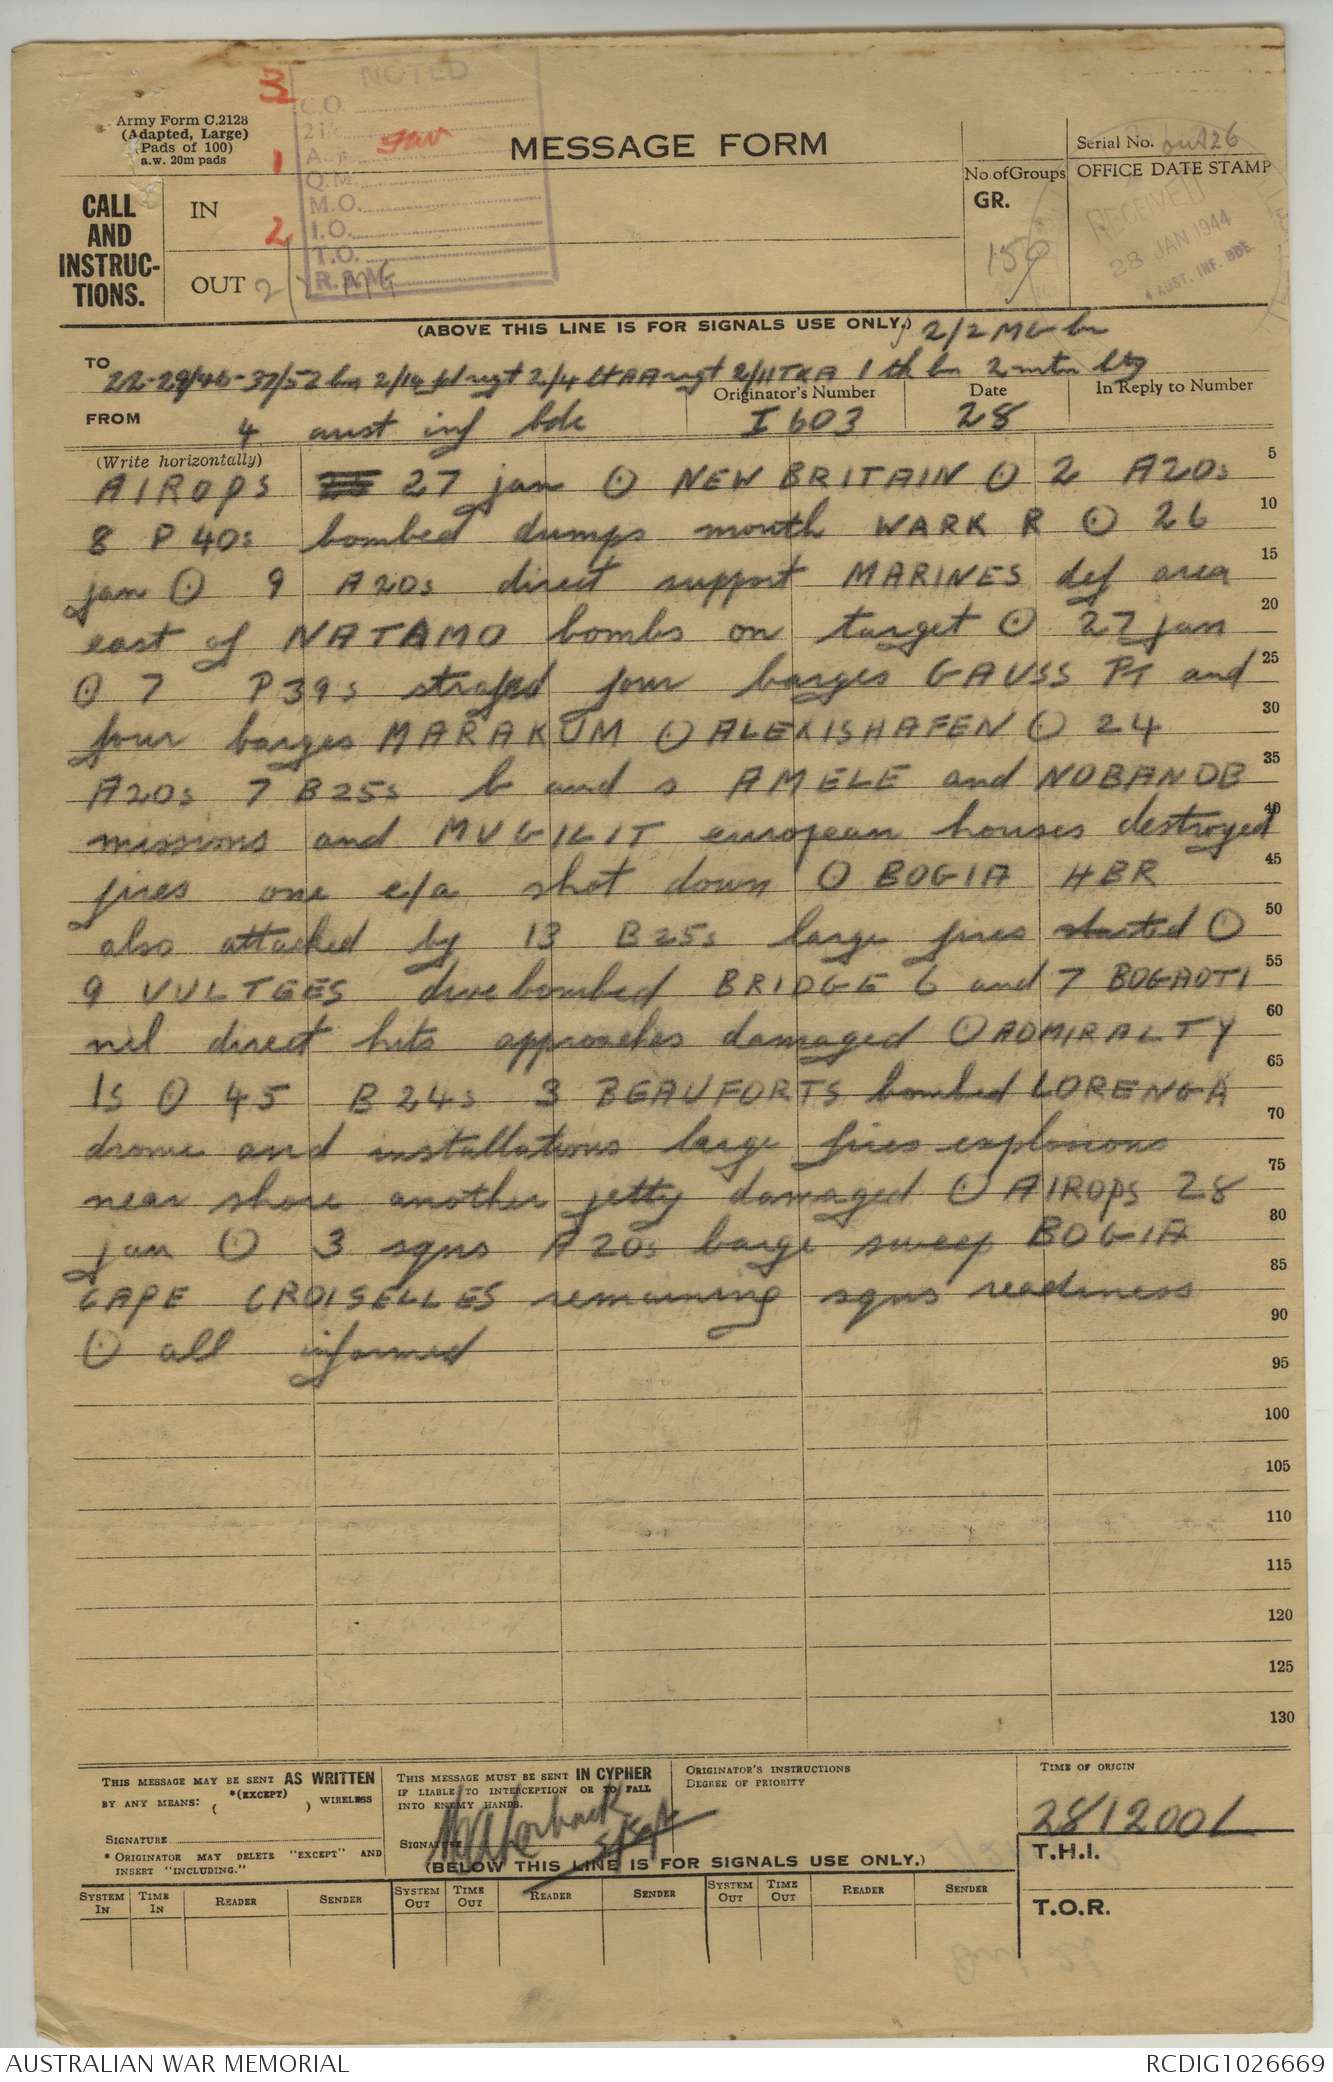 Army Form C.2128
(Adapted, Large)
(Pads of 100)
a.w. 20m pads
3
1
2
NOTED
C.O.
2 i/c
Adjt
Q.M.
M.O.
I.O.
T.O.
R.A.M.
MESSAGE FORM
Serial No. out 26
No of Groups
GR.
150
OFFICE DATE STAMP
RECEIVED
28 JAN 1944
4 AUST. INF. BDE
CALL
AND
INSTRUC-
TIONS.
IN
OUT
(ABOVE THIS LINE IS FOR SIGNALS USE ONLY.)
2/2 MG bn
TO 22-29/46-37/52 bn 2/14 fd regt 2/4 lt AA regt 2/11 TKA 1 th bn 2 mtn bty
FROM 4 aust inf bde
Originator's Number
I 603
Date
28
In Reply to Number
(Write horizontally)
AIROPS 27 jan ⊙ NEW BRITAIN ⊙ 2 A20s
8 P40s bombed dumps mouth WARK R ⊙ 26
jan ⊙ 9 A20s direct support MARINES def area
east of NATAMO bombs on target ⊙ 27 jan
⊙ 7 P39s strafed four barges GAUSS PT and
four barges MARAKUM ⊙ ALEXISHAFEN ⊙ 24
A20s 7 B25s b and s AMELE and NOBANOB
missions and MUGILIT european houses destroyed
fires one e/a shot down ⊙ BOGIA HBR
also attacked by 13 B25s large fires started ⊙
9 VULTEES divebombed BRIDGE 6 and 7 BOGADTI
nil direct hits approaches damaged ⊙ ADMIRALTY
IS ⊙ 45 B24s 3 BEAUFORTS bombed LORENGA
drome and installations large fires explosions
near shore another jetty damaged ⊙ AIROPS 28
jan ⊙ 3 sqns A20s barge sweep BOGIA
CAPE CROISELLES remaining sqns readiness
⊙ all informed
5
10
15
20
25
30
35
40
45
50
55
60
65
70
75
80
85
90
95
100
105
110
115
120
125
130
THIS MESSAGE MAY BE SENT AS WRITTEN
BY ANY MEANS: *(EXCEPT) ( ) WIRELESS
SIGNATURE
* ORIGINATOR MAY DELETE "EXCEPT" AND
INSERT "INCLUDING."
THIS MESSAGE MUST BE SENT IN CYPHER
IF LIABLE TO INTERCEPTION OR TO FALL
INTO ENEMY HANDS.
SIGNATURE
ORIGINATOR'S INSTRUCTIONS
DEGREE OF PRIORITY
TIME OF ORIGIN
281200L
T.H.I.
T.O.R.
(BELOW THIS LINE IS FOR SIGNALS USE ONLY.)
SYSTEM IN TIME IN READER SENDER SYSTEM OUT TIME OUT READER SENDER SYSTEM OUT TIME OUT READER SENDER
AUSTRALIAN WAR MEMORIAL
RCDIG1026669